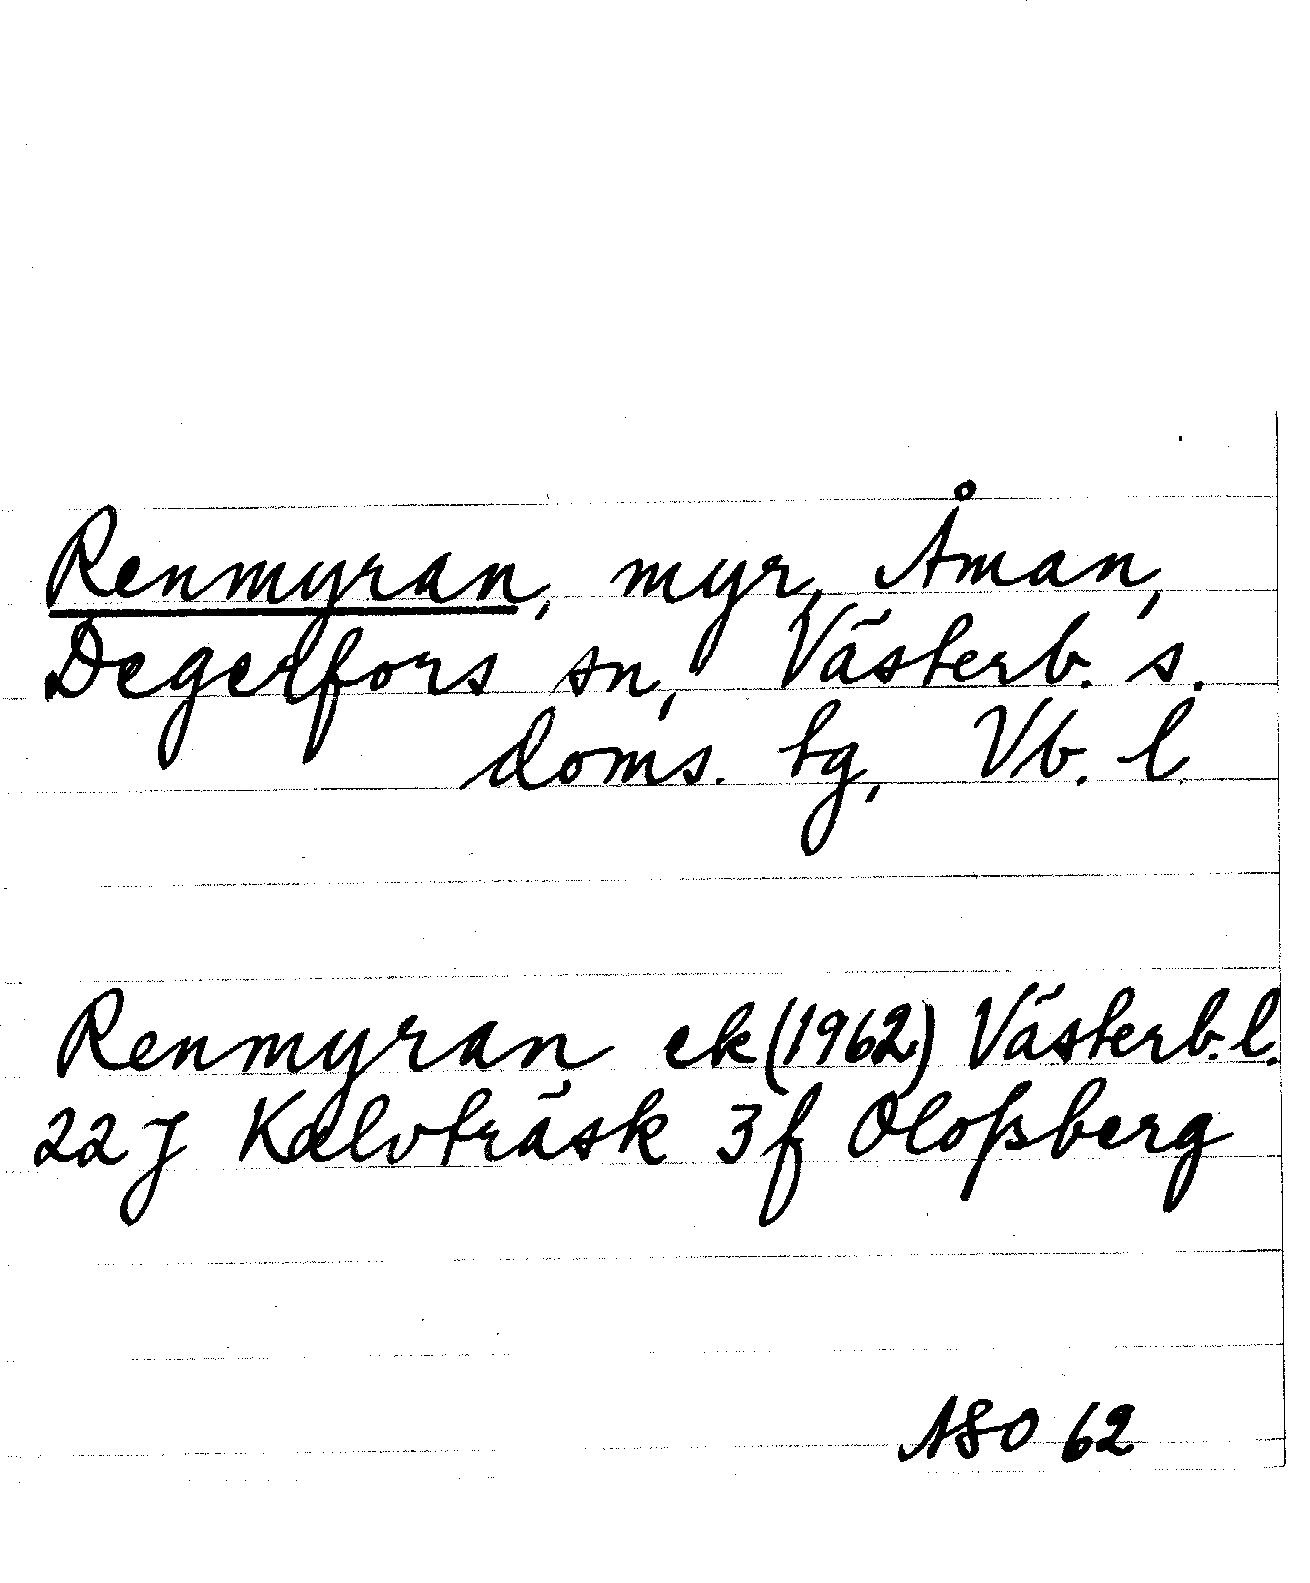 Renmyran, myr, Åman,
Degerfors sn, Västerb. s.
doms. tg, Vb. l
Renmyran ek (1962) Västerb. l.
22 J Kalvträsk 3 f Olofsberg
ASO 62